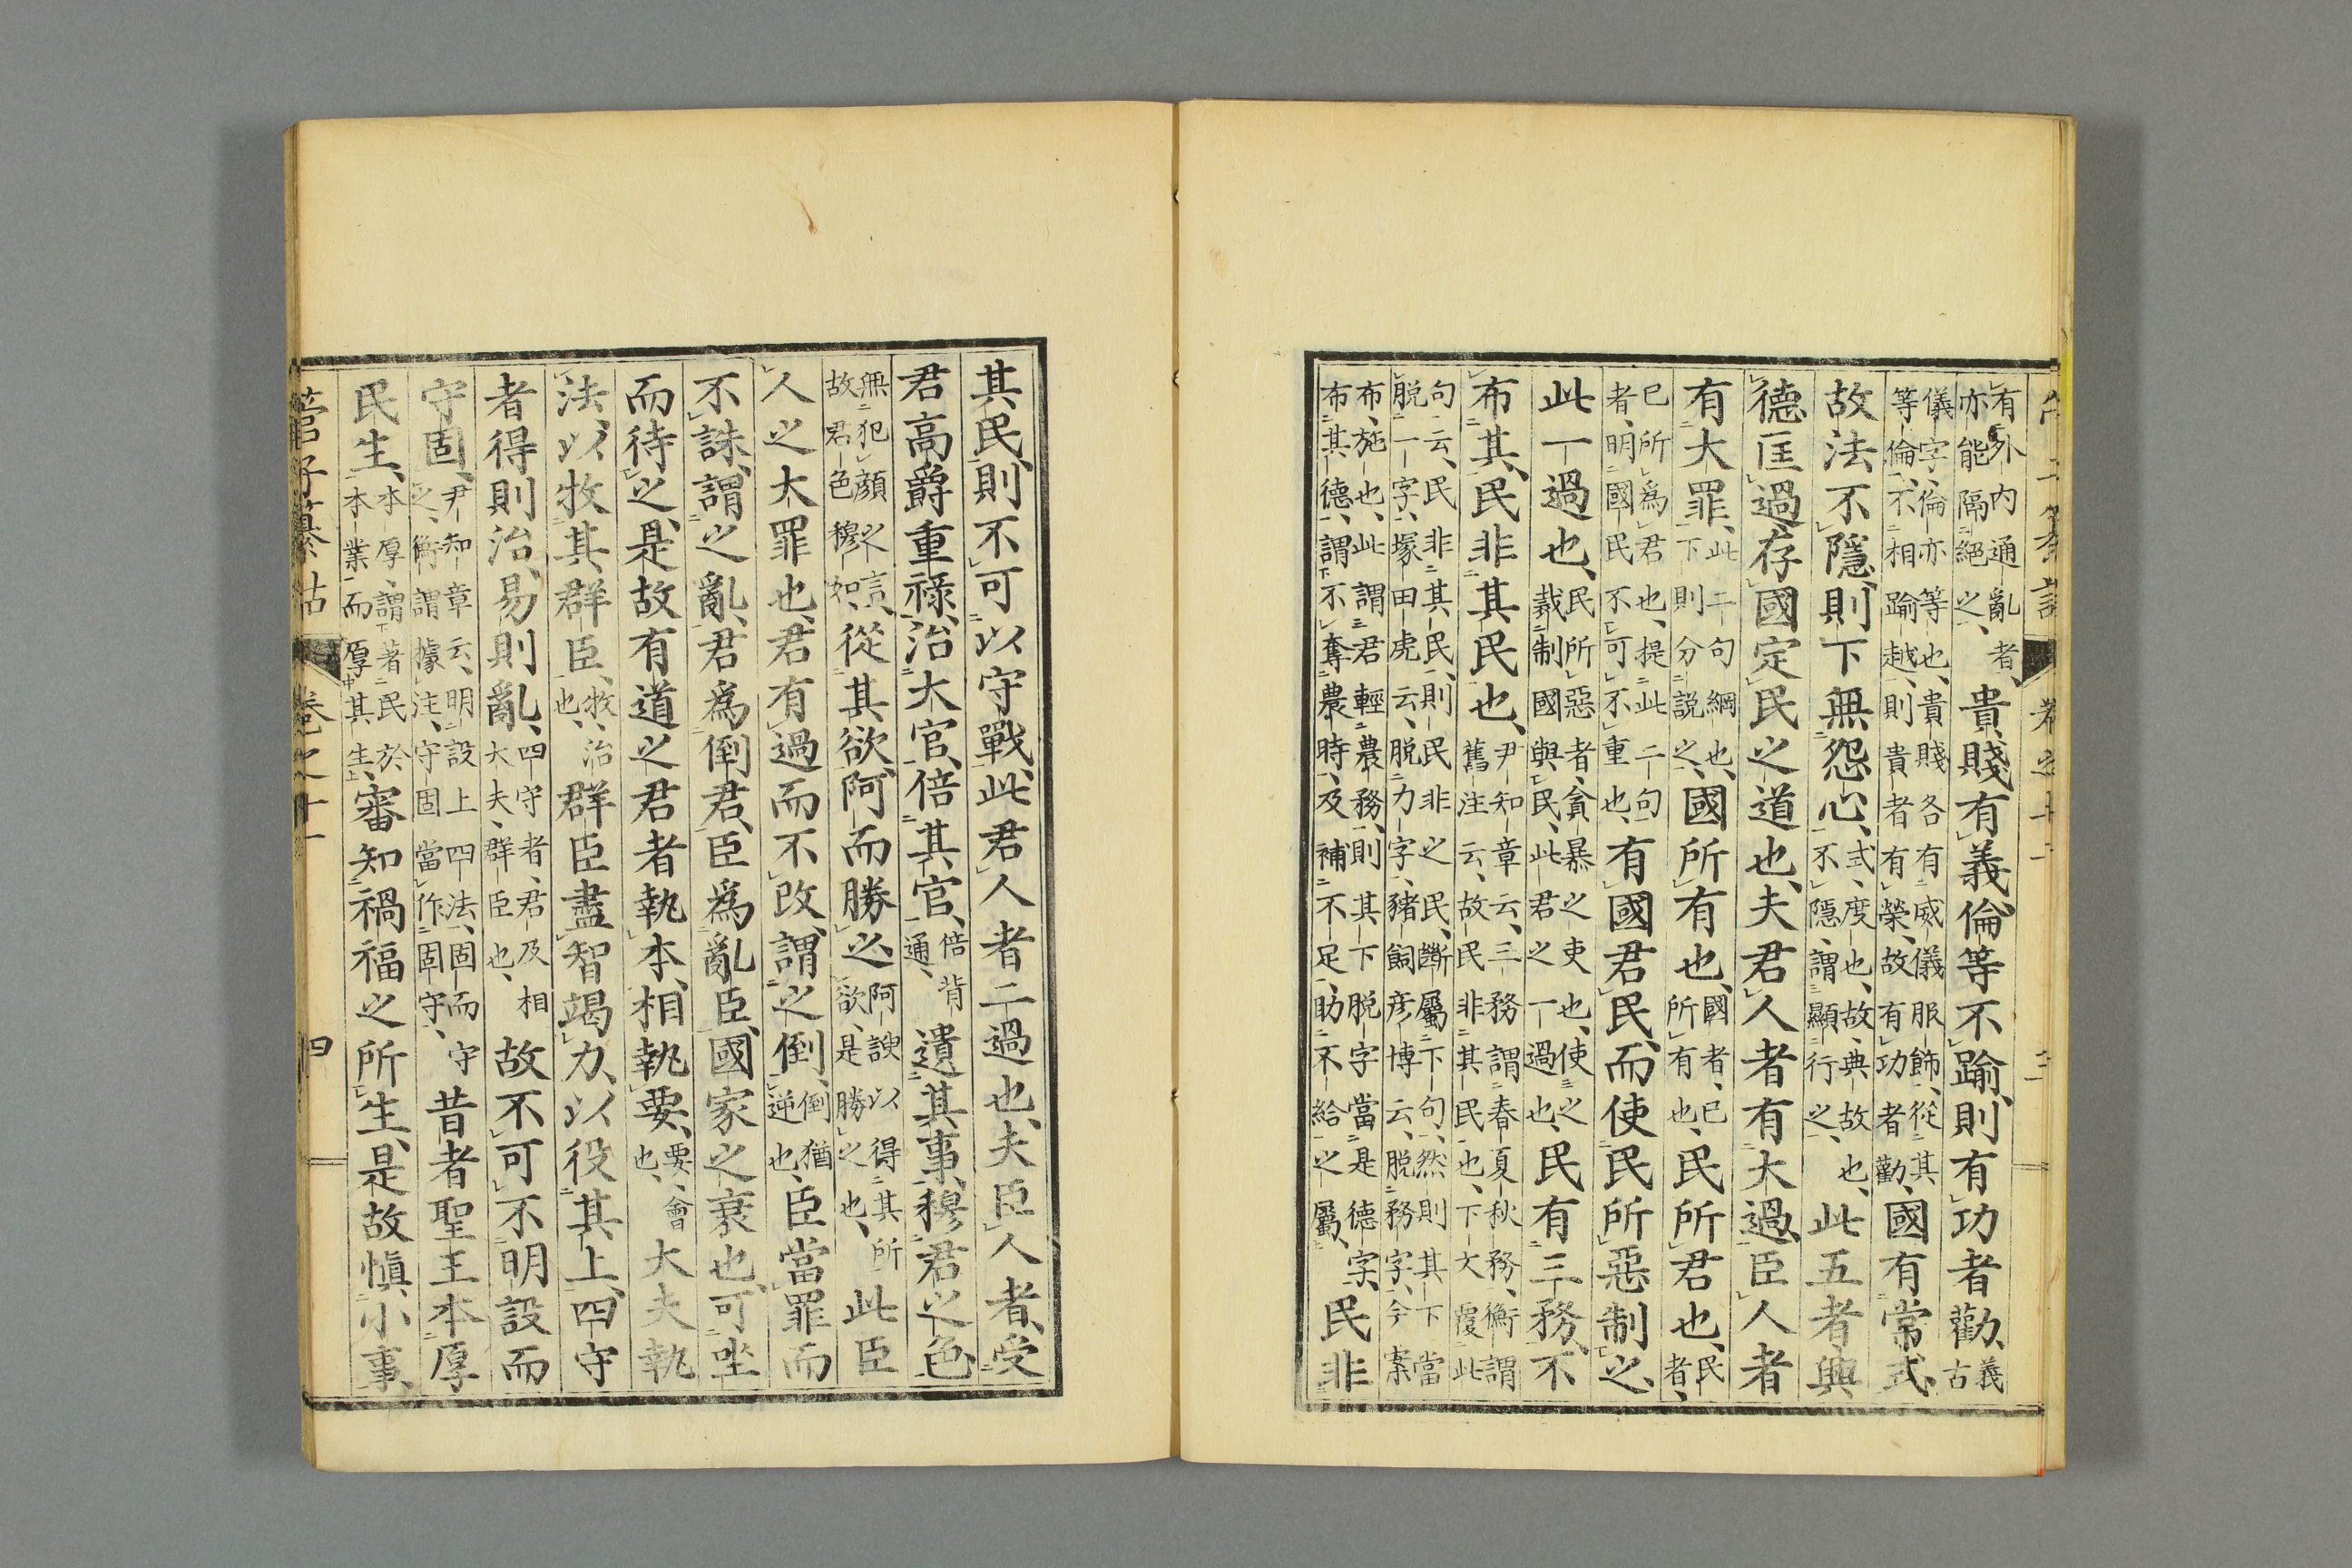 有外内通亂者、亦能隔絕之、貴賤有義、倫等不踰、則有功者勸、義古
儀字、倫亦等也、貴賤各有威儀服飾、從其等倫、不相踰越、則貴者有榮、故有功者勸、國有常式、
故法不隱、則下無怨心、式、度也、故、典故也、不隱、謂顯行之、此五者、興
德匡過、存國定民之道也、夫君人者有大過、臣人者
有大罪、此二句綱也、下則分説之、國所有也、國者、已所有也、民所君也、民者、
已所爲君也、提此二句者、明國民不可不重也、有國君民、而使民所惡制之、
此一過也、民所惡者、貪暴之吏也、使之裁制國與民、此君之一過也、民有三務、不
布其民、非其民也、尹知章云、三務謂春夏秋務、衡謂舊注云、故民非其民也、下文覆此
句云、民非其民、則民非之民、斷屬下句、然則其下當脱一字、塚田虎云、脱力字、豬飼彦博云、脱務字、今案
布、施也、此謂君輕農務、則其下脱字當是德字、布其德、謂不奪農時、及補不足、助不給之屬、民非
其民、則不可以守戰、此君人者二過也、夫臣人者、受
君高爵重祿、治大官、倍其官、倍背通、遺其事、穆君之色、
無犯顔之言、故君色穆如、從其欲、阿而勝之、阿諛以得其所欲、是勝之也、此臣
人之大罪也、君有過而不改、謂之倒、倒猶逆也、臣當罪而
不誅、謂之亂、君爲倒君、臣爲亂臣、國家之衰也、可坐
而待之、是故有道之君者執本、相執要、要、會也、大夫執
法、以牧其群臣、牧、治也、群臣盡智竭力、以役其上、四守
者得則治、易則亂、四守者、君及相大夫、群臣也、故不可不明設而
守固、尹知章云、明設上四法、固而守之、衡謂據注、守固當作固守、昔者聖王本厚
民生、本厚、謂著民於本業、而厚其生、審知禍福之所生、是故愼小事、
管子纂詁 卷之十一 四